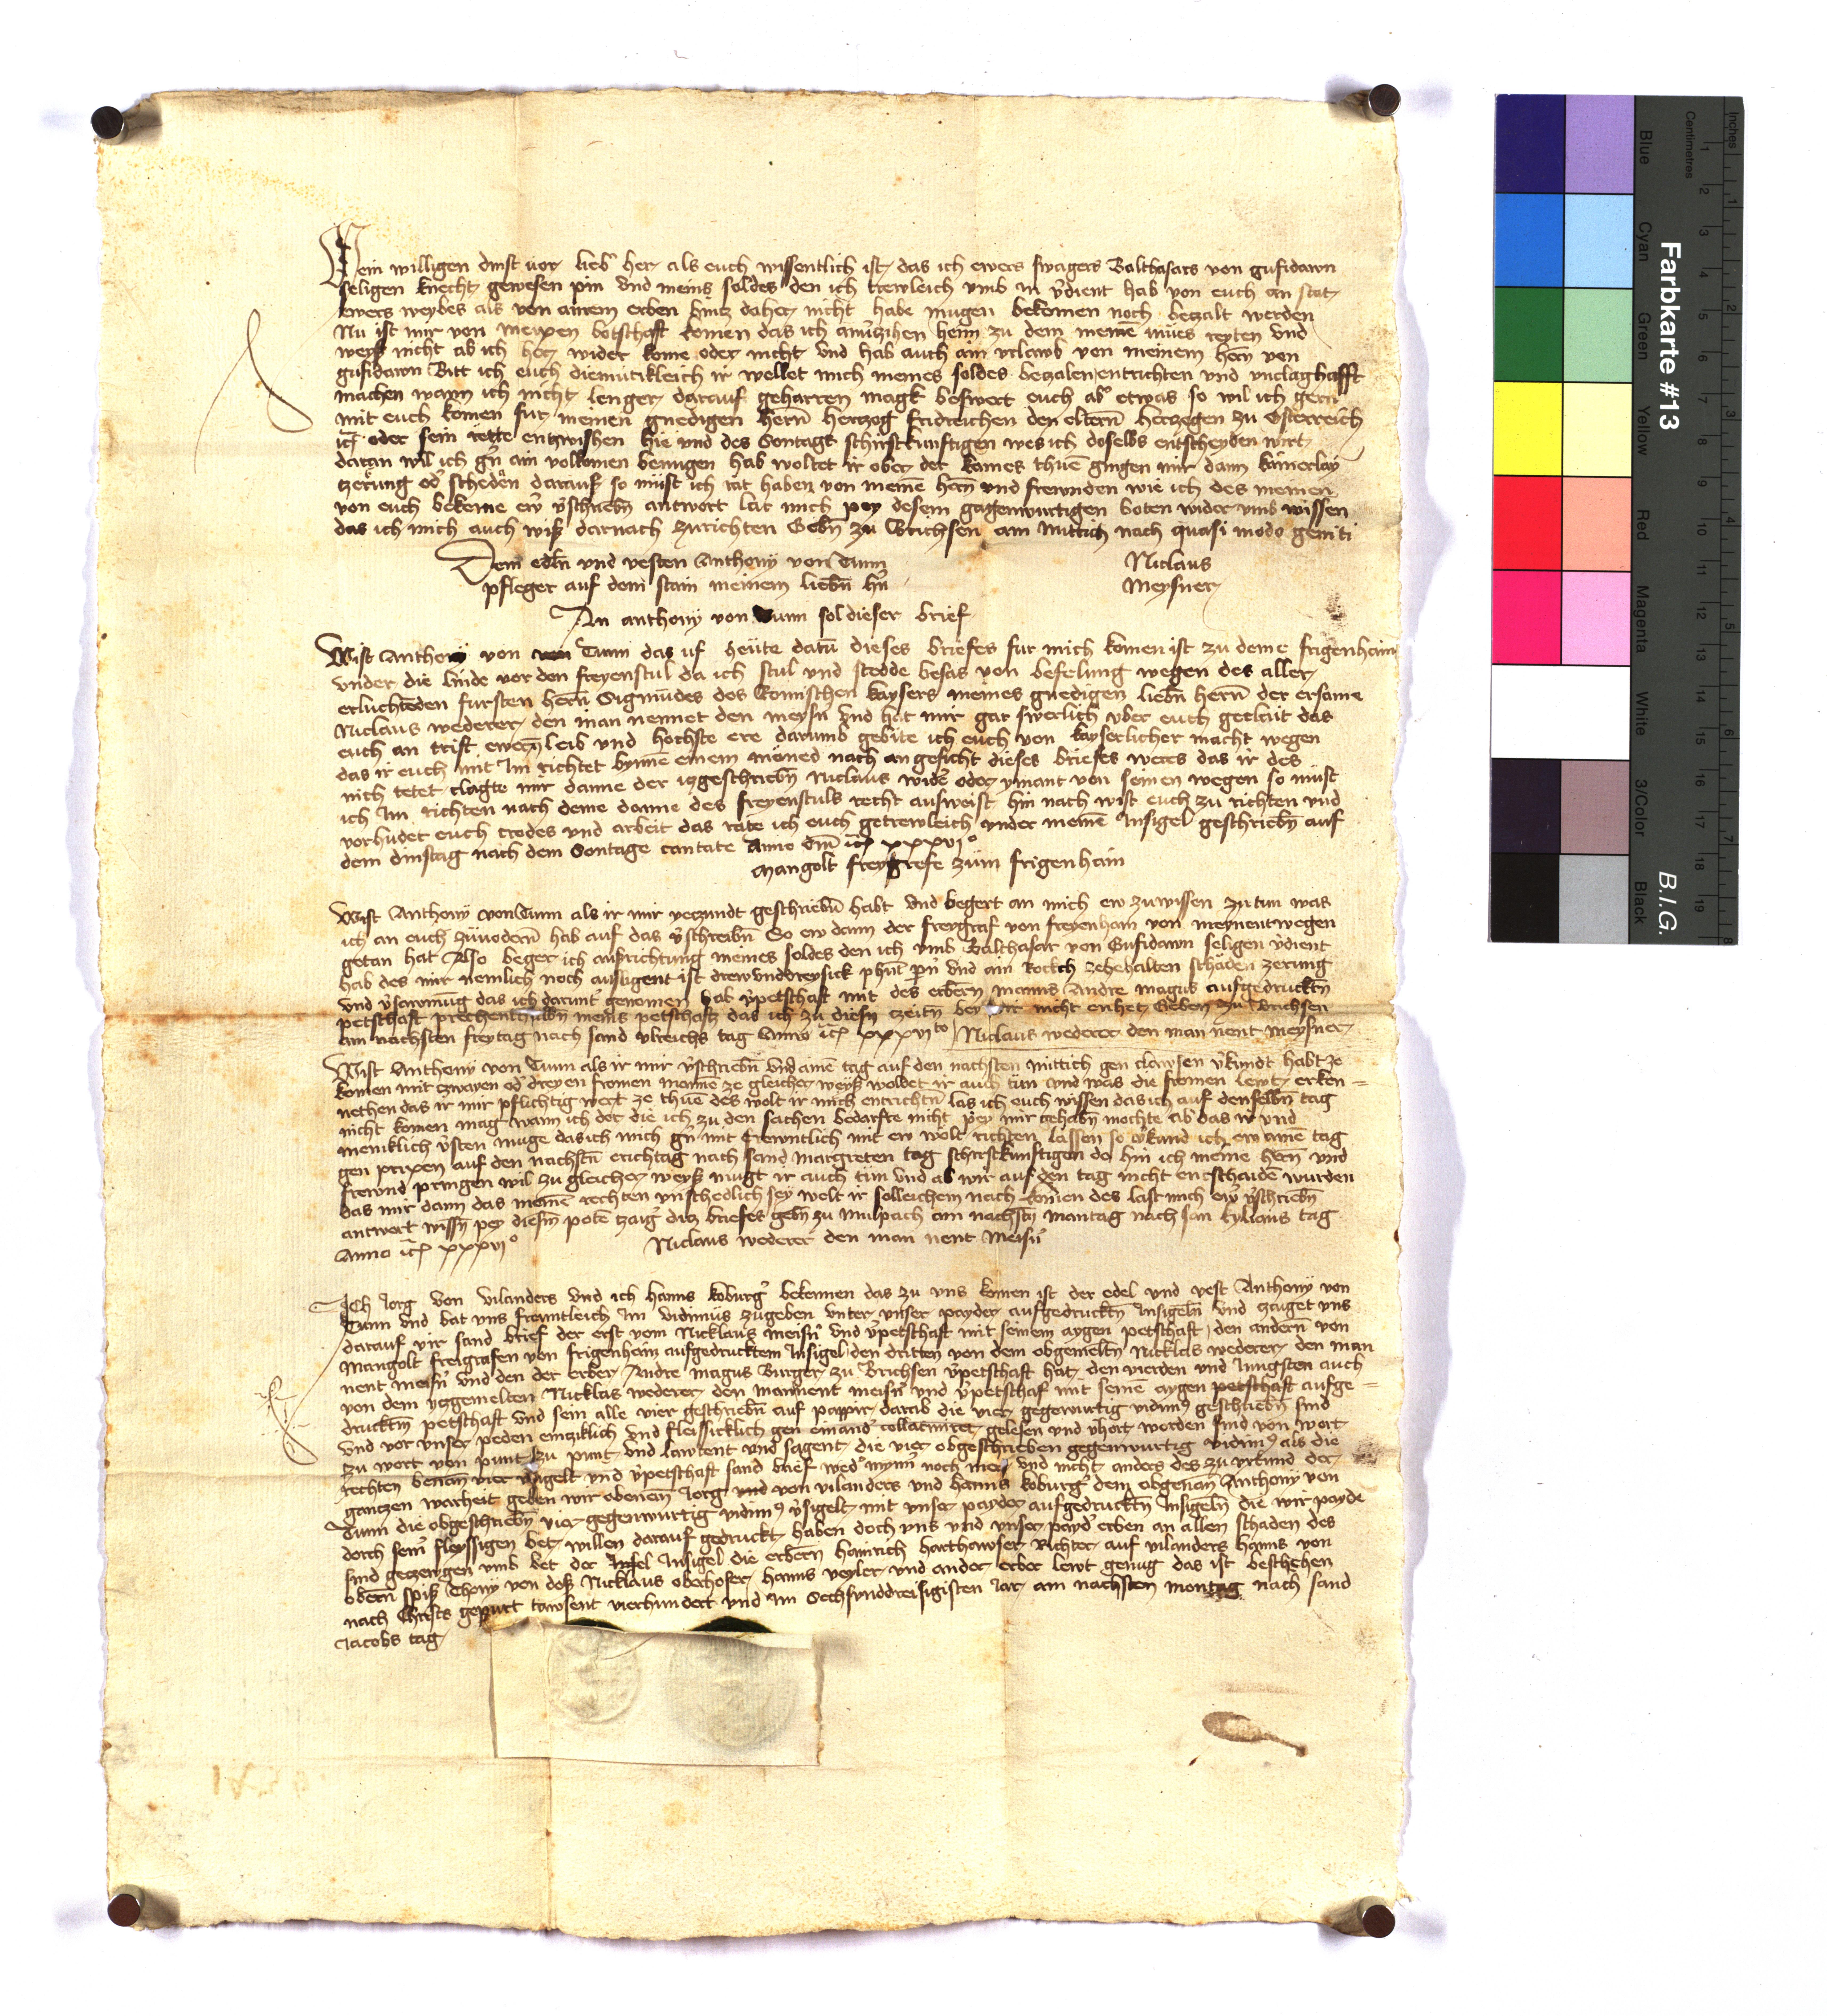 Mein willigen dinst vor lieber her als euch wissentlich ist das ich ewers swagers Balthasars von gufidawn
seligen knecht gewesen pin vnd meins soldes den ich trewleich vmb in v̓dient hab von euch an stat
ewers weybes als von ainem erben vintz daher nicht habe mugen bekomen noch beczalt werden
Nu ist mir von meixen botschaft komen das ich heim zu dem meinē mues reyten vnd
weyß nicht ab ich her wider kome oder nicht vnd hab auch ain vrlawb von meinem hern von
gufidawn Bitt ich euch diemutikleich ir wellet mich meines soldes beczalen entrichten vnd vnclaghafft
machen wann ich nicht lenger darauf geharren magk beswert euch ab̓ etwas so wil ich gern
mit euch komen fur meinen gnedigen hern̄ herczog fridreichen den eltern̄ herczogen zu Osterreich
ic̄ꝭ oder sein rette entzwishen hie vnd des Sontags schirstkunftigen wes ich doselbs entscheyden wirt
daran wil ich gn̓ ain volkomen benugen hab woltet ir ober der kaines thuē gingen mir dann kainerlay
czerung od̓ scheden darauf so müst ich rat haben von meinē hern̄ vnd frewnden wie ich des meinen
von euch bekeme ew̓ v̓schriebn̄ antwort lat mich pey desem gagenwurtigen boten wider vmb wissen
das ich mich auch wiß darnach zurichten Gebn̄ zu Brichsen am Mittich nach quasi modo geniti
Dem edln̄ vnd vesten Anthony von Tunn
Niclaus
pfleger auf dem stain meinem liebn̄ hn̓
Meysner
An anthony von Tunn sol dieser brief
Wist Anthony von Tunn das uf heüte datū dieses briefes fur mich komen ist zu deme frigenhain
vnder die linde vor den freyenstul da ich stul vnd stedde besas von befelung wegen des aller
erluchteden fursten hern̄ Sigmūdes des Romischen kaysers meines gnedigen liebn̄ hern̄ der ersame
Niclaus wederer den man nennet den meysn̓ vnd hat mir gar swerlich vber euch geclait das
euch an trift ewern̄ leib vnd hochste ere darumb gebite ich euch von kayserlicher macht wegen
das ir euch mit Im richtet bynnē einem mōned nach angesicht dieses briefes weres das ir des
nich tetet clagte mir danne der iczgeschriebn̄ Niclaus wid̓e oder ymant von seinen wegen so müst
ich Im richten nach deme danne des freyenstuls recht ausweist hin nach wist euch zu richten vnd
vorhudet euch crodes vnd arbeit das rate ich euch getrewleich vnder meinē Insigel geschriebn̄ auf
dem dinstag nach dem Sontage cantate Anno dn̄i ic̄ꝭ xxxvjº
Mangolt freygrefe züm frigenhain
Wist Anthony von Tunn als ir mir yeczundt geschriebn̄ habt vnd begert an mich ew zuwissen zu tun was
ich an euch züuodern̄ hab auf das v̓schreibn̄ So ew dann der freygraf von freyenhain von meynentwegen
getan hat Also beger ich ausrichtung meines soldes den ich vmb Balthasar von Gufidawn seligen v̓dient
hab des mir nemlich noch ausligent ist drewvnddreysick phunt pn̄ vnd ain Rockch zebehalten schäden zerung
vnd v̓sawmug das ich darunt̓ genomen hab v̓petschaft mit des erbern̄ manns Andre Magus aufgedrucktn̄
petschaft prechenthalbn̄ meins petschafts das ich zu diesn̄ czeitn̄ bey mir nicht enhet Geben zu Brichsen
am nachsten freytag nach sand vlreichs tag Anno ic̄ꝭ xxxvjto Niclaus wederer den man nent Meysner
Wist Anthony von Tunn als ir mir v̓schriebn̄ vnd ainē tag auf den nachsten mittich gen clawsen v̓kundt habt ze
komen mit czwayen od̓ dreyen fromen mannē ze gleicher weyß woldet ir auch tün vnd was die fromen lewt erken=
nethen das ir mir pflichtig wert ze thuē des wolt ir mich entrichtn̄ las ich euch wissen das ich auf denselbn̄ tag
nicht komen mag wann ich der die ich zu den sachen bedarfte nicht pey mir gehabn̄ mochte ab das ir vnd
meniklich v̓sten muge das ich mich gn̓ mit frewntlich mit ew wolt richten lassen so v̓kund ich ew ainē tag
gen prixen auf den nachstn̄ erichtag nach sand margreten tag schirstkunftigen do hin ich meine hern̄ vnd
frewnd pringen wil zu gleicher weyß mugt ir auch tün vnd ab wir auf den tag nicht entschaidē wurden
das mir dann das meinē rechten vnschedlich sey welt ir solleichem nach komen des last mich ew̓ v̓schriebn̄
antwort wissn̄ pey diesm̄ potē czaig̓ dicz briefes gebn̄ zu Mulpach am nachstn̄ mantag nach san kylians tag
Anno ic̄ꝭ xxxvjº
Niclaus wederer den man nent Meisn̓
ICh Jorg von vilanders vnd ich hanns koburg̓ bekennen das zu vns komen ist der edel vnd vest Anthony von
Tunn vnd bat vns frewntleich Im vidimüs zugeben vnter vnser payder aufgedrucktn̄ Insigeln̄ vnd czaiget vns
darauf vir sand brief der erst vom Nicklaus meisn̓ vnd v̓petschaft mit seinem aygen petschaft den andern̄ von
Mangolt freigrafen von frigenhain aufgedrucktem Insigel den dritten von dem obgemeltn̄ Nicklas wederer den man
nent meisn̓ vnd den der erber Andre Magus Burger zu Brichsen v̓petschaft hat den vierden vnd Jungsten auch
von dem yczgemelten Nicklas wederer den man nent meisn̓ vnd v̓petschaf mit seinē aygen petschaft aufge=
drucktm̄ petschaft vnd sein alle vier geschriebn̄ auf pappir darab die vier gegewurtig vidim̓ geschriebn̄ sind
vnd vor vnser peden eincziklich vnd fleissicklich gen einand̓ collacniret gelesen vnd v̓hort worden sind von wort
zu wort von punt zu punt vnd lawtent vnd sagent die vier obgeschrieben gegenwurtig vidim̓ als die
rechten benan̄ vier v̓sigelt vnd v̓petschaft sand brief wed̓ mynn̓ noch mer vnd nicht anders des zu vrkund der
ganczen warheit geben wir obenan̄ Jorg von vilanders vnd hanns koburg̓ dem obgenan̄ Anthony von
Tunn die obgeschriebn̄ vier gegenwurtig vidim̓ v̓sigelt mit vnser payder aufgedrucktn̄ Insigeln̄ die wir payde
dorch seiner fleyssigen bet willen darauf gedruckt haben doch vns vnd vnser payd̓ erben an allen schaden des
sind geczewgen vmb bet der Insigel die erbern̄ hainrich harthawser Richter auf vilanders hanns von
obern̄ spiß Thony von doß Nicklaus oberhofer hanns veyler vnd ander erber lewt genug das ist beschehen
nach Christs gepurt tawsent vierhundert vnd im Sechsvnddreisigisten Jar am nachsten montag nach sand
Jacobs tag
Farbkarte #13
B.I.G.
Blue
Cyan
Green
Yellow
Red
Magenta
White
3/Color
Black
Inches
Centimetres
1 2 3 4 5 6 7 8
1 2 3 4 5 6 7 8 9 10 11 12 13 14 15 16 17 18 19